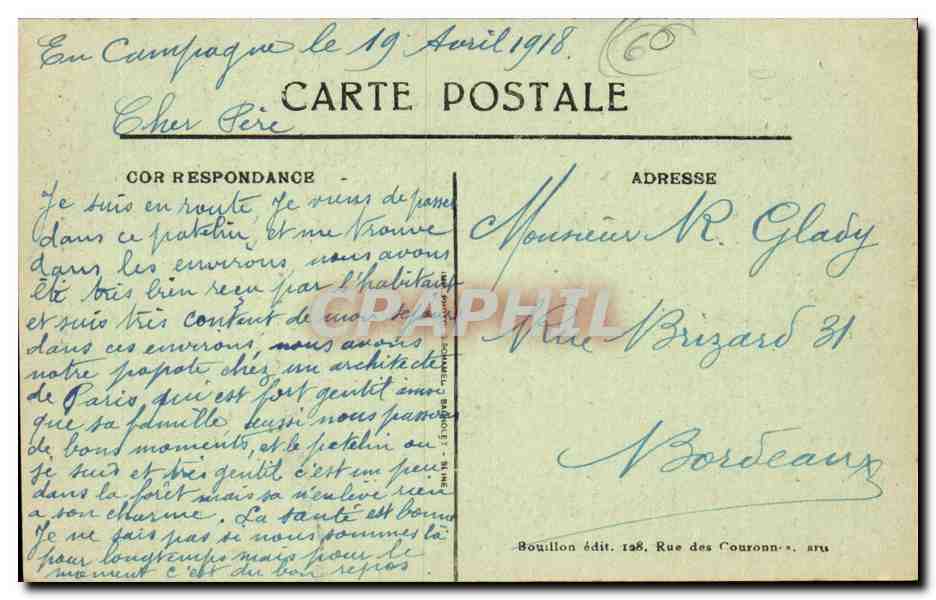 En Campagne le 19 Avril 1918.
60
CARTE POSTALE
Cher Père
CORRESPONDANCE
Je suis en route, Je viens de passer
dans ce patelin, et me trouve
dans les environs, nous avons
été très bien reçu par l'habitant
et suis très content de mon séjour
dans ces environs, nous avons
notre popote chez un architecte
de Paris, qui est fort gentil ainsi
que sa famille aussi nous passons
de bons moments, et le patelin ou
je suis et très gentil c'est un peu
dans la forêt mais sa n'enlève rien
a son charme. La santé est bonne
Je ne sais pas si nous sommes là
pour longtemps mais pour le
moment c'est du bon repos.
ADRESSE
Monsieur R. Glady
Rue Brizard 31
Bordeaux
SCHAMEL, BAGNOLET - SEINE
CPAPHIL
Bouillon édit. 128, Rue des Couronnes,